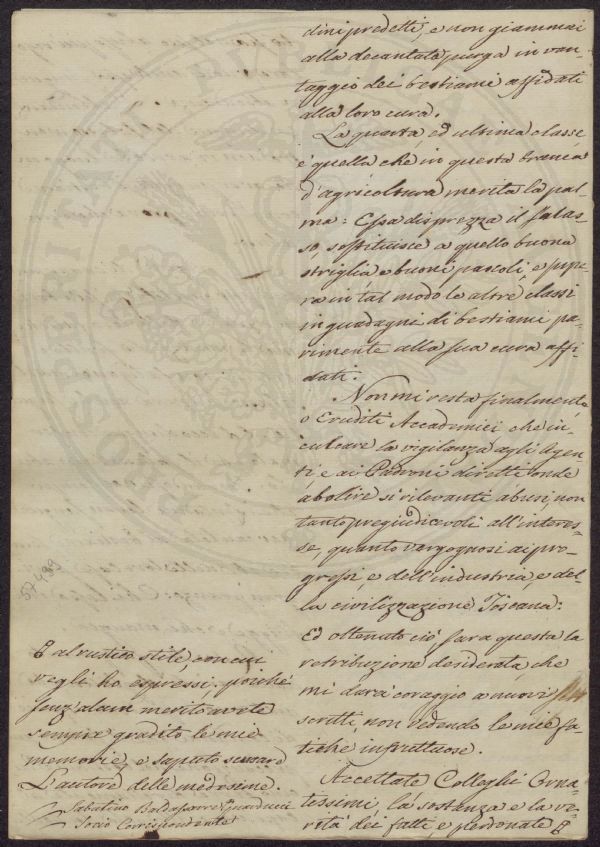 dini predetti, e non giammai
alla decantata purga in van-
taggio dei bestiami affidati
alla loro cura.
La quarta, ed ultima classe
è quella che in questa branca
d'agricoltura merita la pal-
ma: Essa disprezza il salas-
so, sostituisce a quello buona
striglia e buoni pascoli, e supe-
ra in tal modo le altre classi
in guadagni di bestiami pa-
rimente alla sua cura affi-
dati.
Non mi resta finalmente
o Eruditi Accademici che in-
culcare la vigilanza agli Agen-
ti e ai Padroni diretti onde
abolire sì rilevanti abusi non
tanto pregiudicevoli all'interes-
se, quanto vergognosi ai pro-
gressi e dell'industria, e del-
la civilizzazione Toscana:
Ed ottenuto ciò sarà questa la
retribuzione desiderata, che
mi darà coraggio a nuovi
scritti non vedendo le mie fa-
tiche infruttuose.
Accettate Colleghi Orna-
tissimi, la sostanza e la ve-
rità dei fatti e perdonate
al rustico stile con cui
ve gli ho espressi, poiché
senz'alcun merito avete
sempre gradito le mie
memorie, e saputo scusare
L'autore delle medesime.
Sabatino Baldassarre Guarducci
Socio Corrispondente
57.499